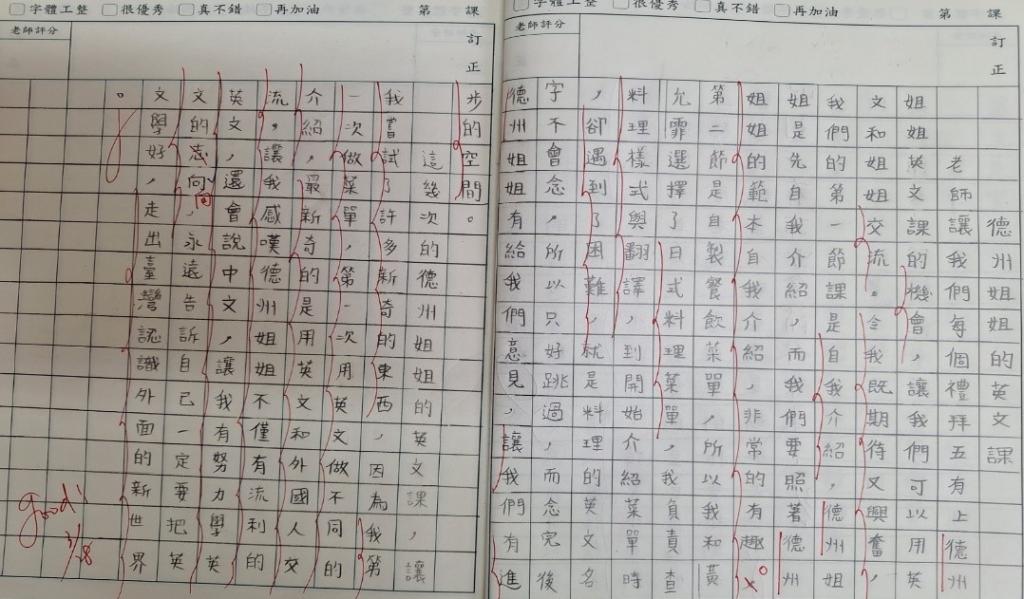 字體工整 很優秀 真不錯 再加油 第 課
老師評分
訂正
德州姐姐的英文課
老師讓我們每個禮拜五有上德州
姐姐英文課的機會,讓我們可以用英
文和姐姐交流。令我既期待又興奮,
我們的第一節課是自我介紹,德州姐
姐是先自我介紹,而我們要照著德州
姐姐的範本自我介紹,非常的有趣。
第二節是自製餐飲菜單,所以我和黃
允霏選擇了日式料理菜單,我負責查
料理樣式與翻譯,到開始介紹菜單時
,卻遇到了困難,就是料理的英文名
字不會念,所以只好跳過,而念完後
德州姐姐有給我們意見,讓我們有進
字體工整 很優秀 真不錯 再加油 第 課
老師評分
訂正
步的空間。
這幾次的德州姐姐的英文課,讓
我嘗試了許多新奇的東西,因為我第
一次做菜單,第一次用英文做不同的
介紹,最新奇的是用英文和外國人交
流,讓我感嘆德州姐姐不僅有流利的
英文,還會說中文,讓我有努力學英
文的志向,永遠告訴自己一定要把英
文學好,走出臺灣認識外面的新世界
。
good!
3/28